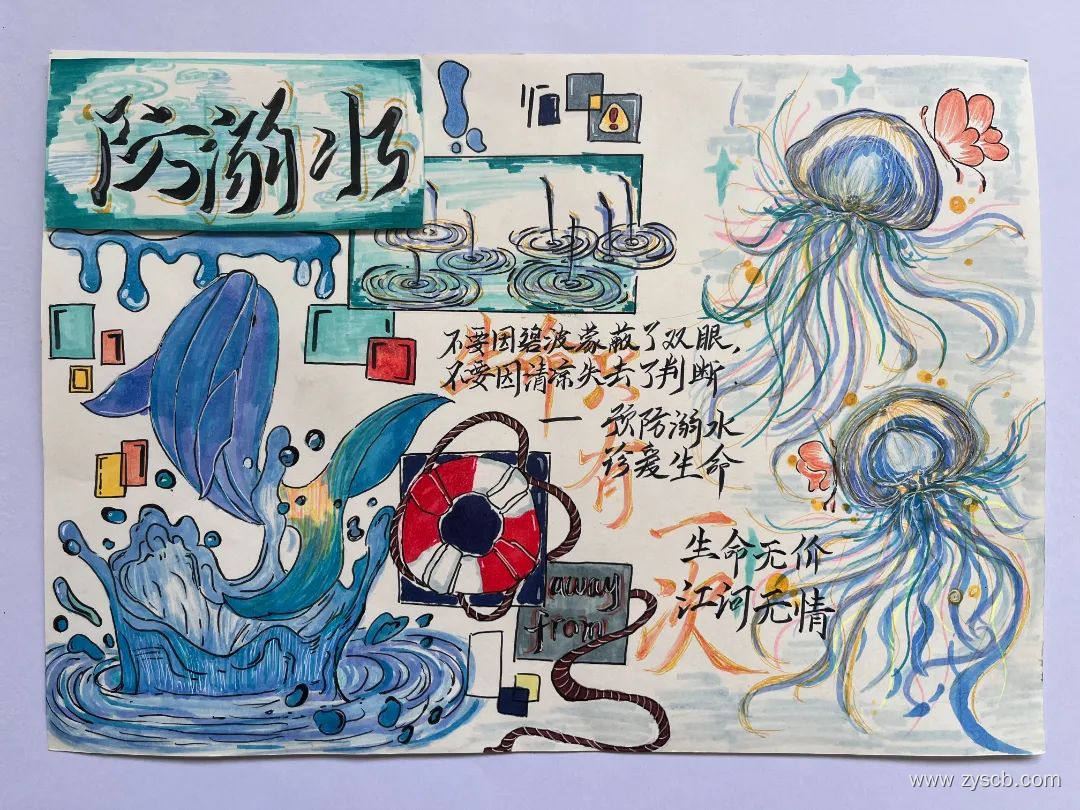 防溺水
不要因碧波蒙蔽了双眼，
不要因清凉失去了判断.
— 预防溺水
珍爱生命
生命无价
江河无情
生命只有一次
away
from
www.zyscb.com